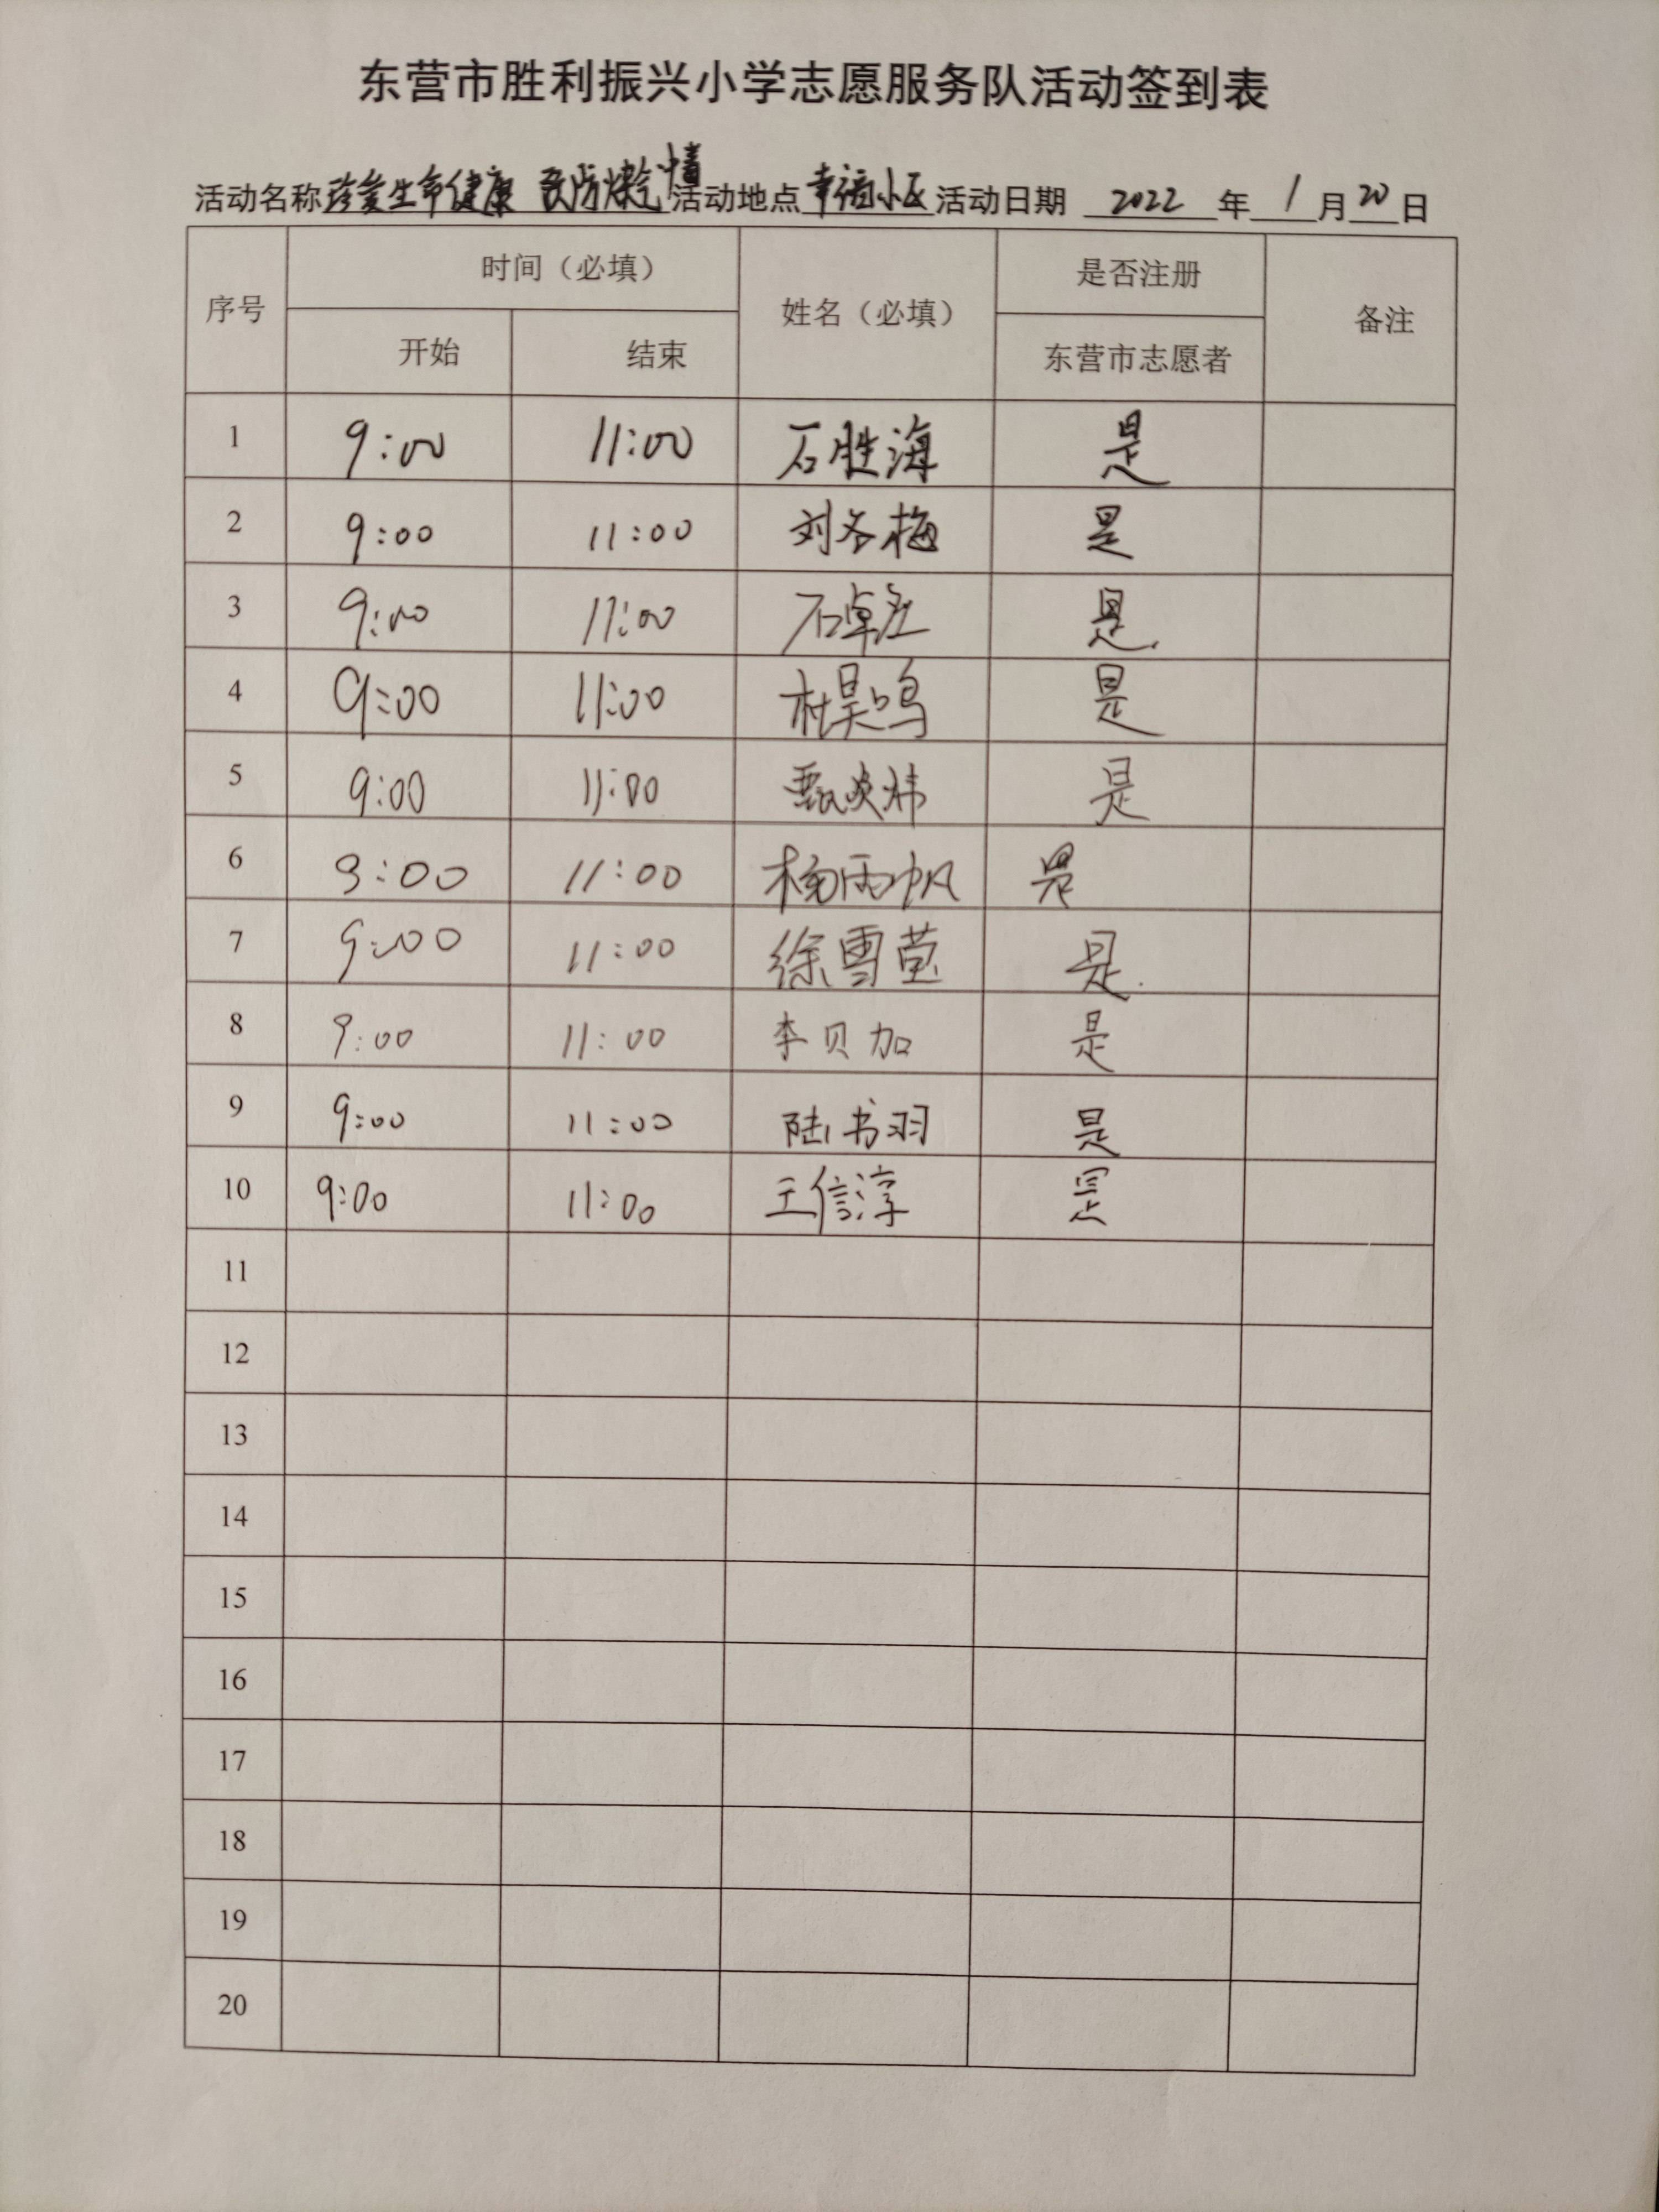 东营市胜利振兴小学志愿服务队活动签到表
活动名称 珍爱生命健康 活动地点 幸福小区 活动日期 2022 年 1 月 20 日
序号 时间（必填） 姓名（必填） 是否注册 备注
开始 结束 东营市志愿者
1 9:00 11:00 石胜海 是
2 9:00 11:00 刘冬梅 是
3 9:00 11:00 石卓 是
4 9:00 11:00 杜昊鸣 是
5 9:00 11:00 甄炎炜 是
6 9:00 11:00 杨雨帆 是
7 9:00 11:00 徐雪莹 是
8 9:00 11:00 李贝加 是
9 9:00 11:00 陆书羽 是
10 9:00 11:00 王信淳 是
11
12
13
14
15
16
17
18
19
20